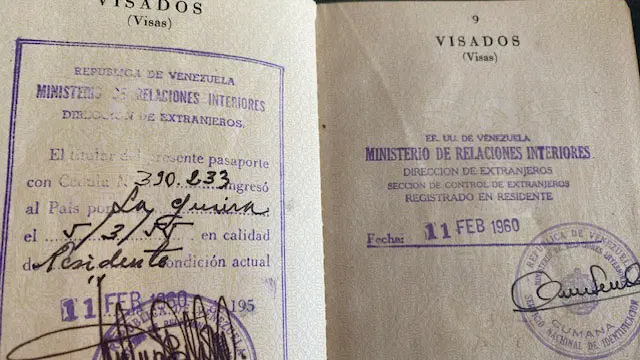 VISADOS
(Visas)
REPUBLICA DE VENEZUELA
MINISTERIO DE RELACIONES INTERIORES
DIRECCION DE EXTRANJEROS.
El titular del presente pasaporte
con Cedula N. 390.233 ingresó
al País por La Guaira
el 5/3/55 en calidad
de Residente condición actual
"
11 FEB 1960 195
9
VISADOS
(Visas)
EE. UU. DE VENEZUELA
MINISTERIO DE RELACIONES INTERIORES
DIRECCION DE EXTRANJEROS
SECCION DE CONTROL DE EXTRANJEROS
REGISTRADO EN RESIDENTE
Fecha: 11 FEB 1960
REPUBLICA DE VENEZUELA
CUMANA
SERVICIO NACIONAL DE IDENTIFICACION